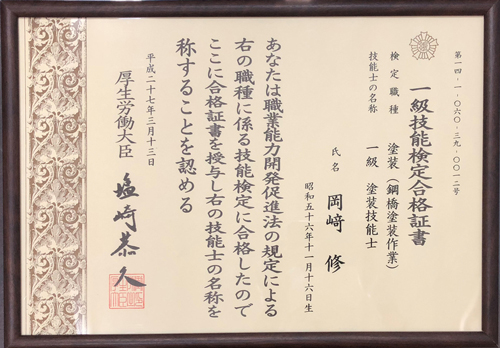 第一四-一-〇六〇-三九-〇〇一二号
一級技能検定合格証書
検定職種 塗装(鋼橋塗装作業)
技能士の名称 一級 塗装技能士
氏名 岡﨑 修
昭和五十六年十一月十六日生
あなたは職業能力開発促進法の規定による
右の職種に係る技能検定に合格したので
ここに合格証書を授与し右の技能士の名称を
称することを認める
平成二十七年三月十三日
厚生労働大臣 塩崎恭久